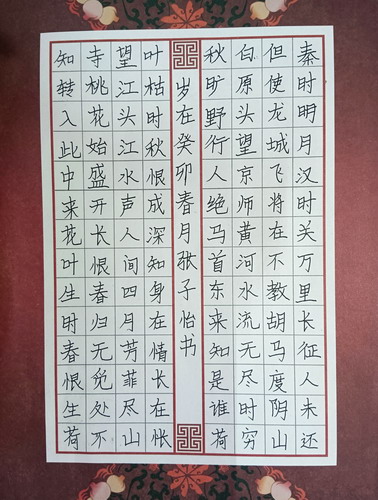 秦时明月汉时关万里长征人未还
但使龙城飞将在不教胡马度阴山
白原头望京师黄河水流无尽时穷
秋旷野行人绝马首东来知是谁荷
岁在癸卯春月张子怡书
叶枯时秋恨成深知身在情长在怅
望江头江水声人间四月芳菲尽山
寺桃花始盛开长恨春归无觅处不
知转入此中来花叶生时春恨生荷